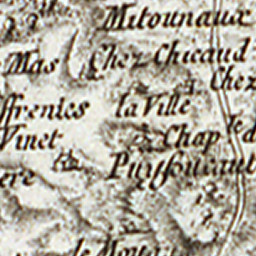 Mitounaux
Mas Chez Chicaud
Chez
ffrenies la Ville
Vinet Chap le d
Puiffoucaut
ere
le Mou